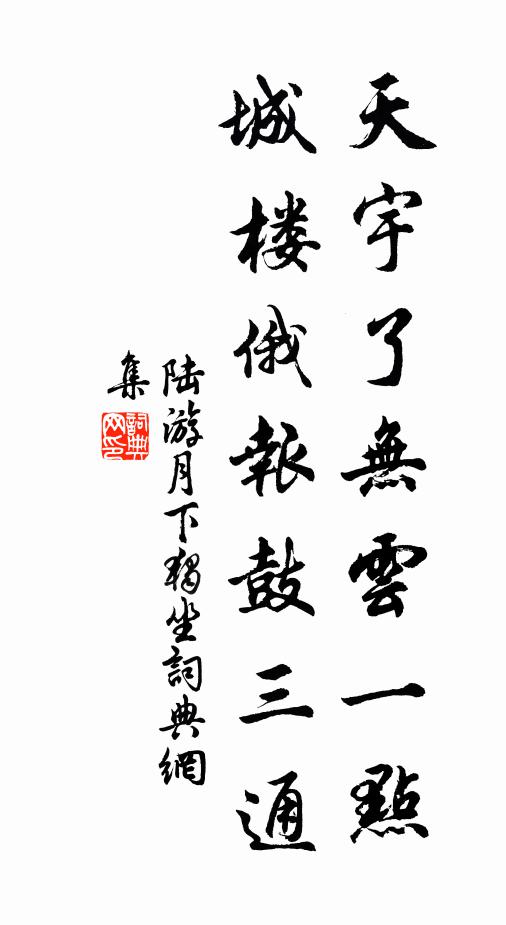 天宇了無雲一點
城楼俄報鼓三通
陆游月下獨坐詞典網
集
詞典
网印